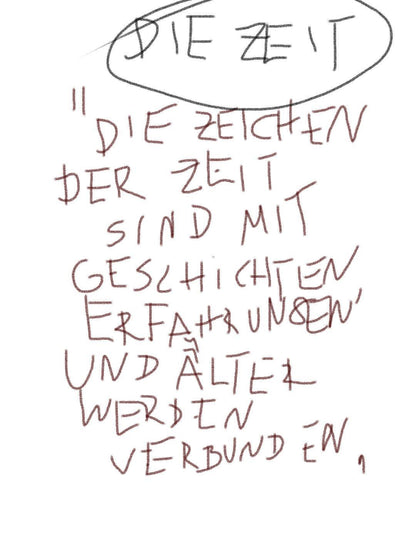 DIE ZEIT
"DIE ZEICHEN
DER ZEIT
SIND MIT
GESCHICHTEN
ERFAHRUNGEN'
UND ÄLTER
WERDEN
VERBUNDEN,